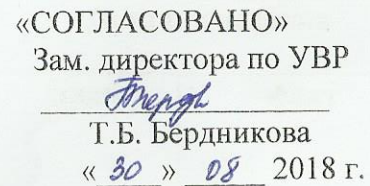 «СОГЛАСОВАНО»
Зам. директора по УВР
Т.Б. Бердникова
« 30 » 08 2018 г.